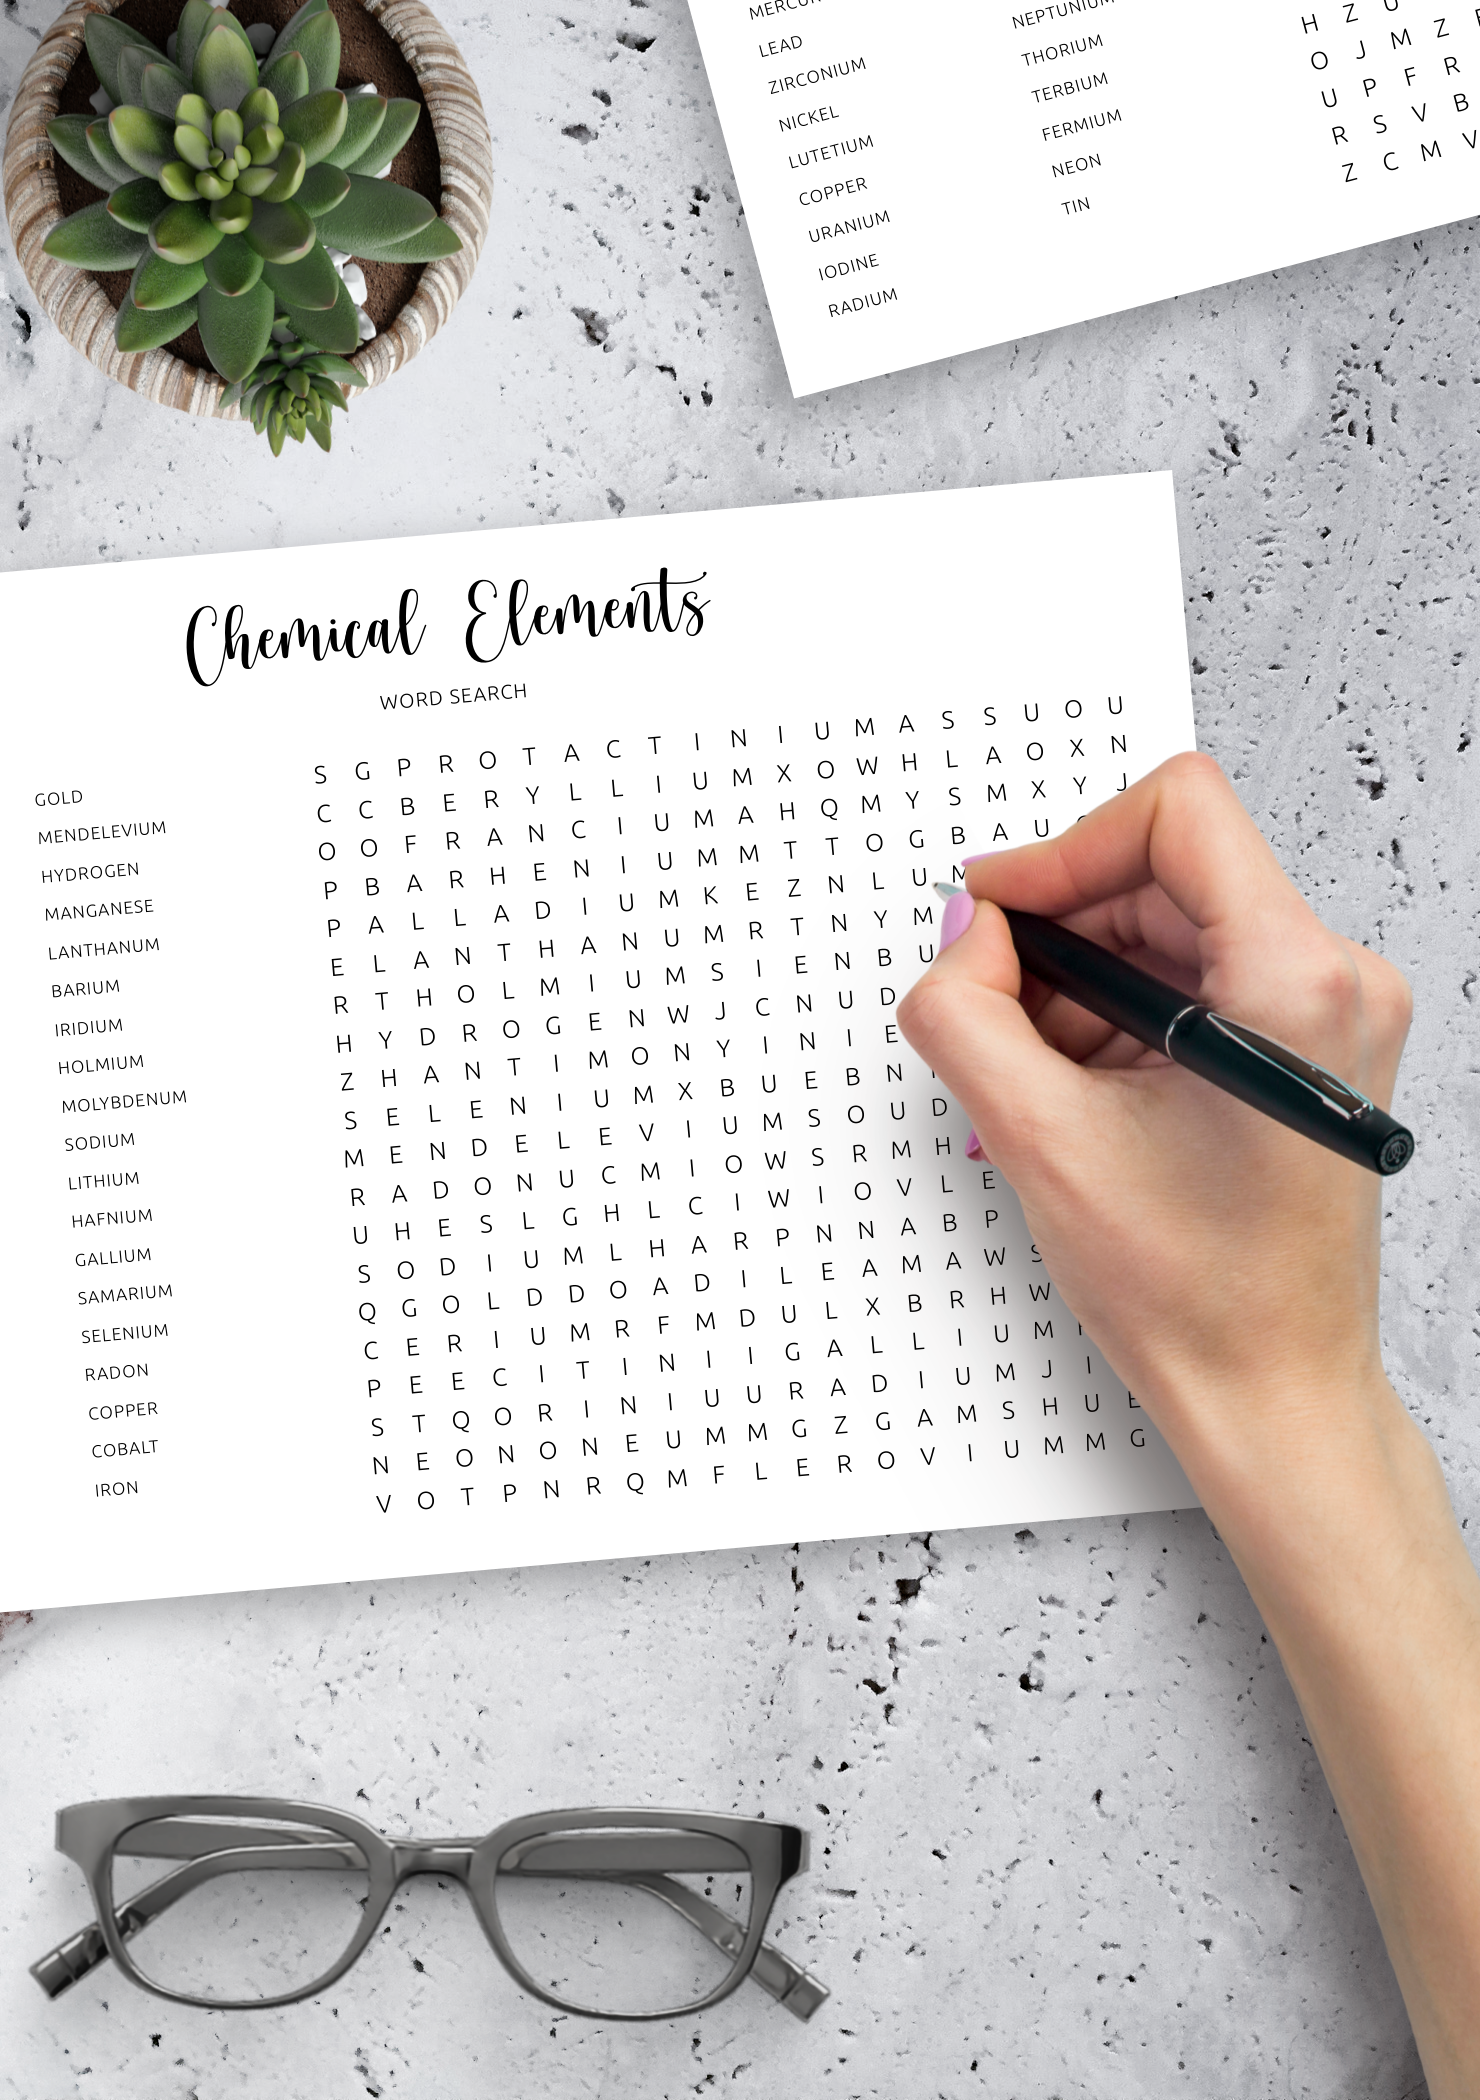 LEAD
ZIRCONIUM
NICKEL
LUTETIUM
COPPER
URANIUM
IODINE
RADIUM
NEPTUNIUM
THORIUM
TERBIUM
FERMIUM
NEON
TIN
H Z U
O J M Z
U P F R
R S V B
Z C M V
Chemical Elements
WORD SEARCH
GOLD
MENDELEVIUM
HYDROGEN
MANGANESE
LANTHANUM
BARIUM
IRIDIUM
HOLMIUM
MOLYBDENUM
SODIUM
LITHIUM
HAFNIUM
GALLIUM
SAMARIUM
SELENIUM
RADON
COPPER
COBALT
IRON
S G P R O T A C T I N I U M A S S U O U
C C B E R Y L L I U M X O W H L A O X N
O O F R A N C I U M A H Q M Y S M X Y J
P B A R H E N I U M M T T O G B A U
P A L L A D I U M K E Z N L U M
E L A N T H A N U M R T N Y M
R T H O L M I U M S I E N B U
H Y D R O G E N W J C N U D
Z H A N T I M O N Y I N I E
S E L E N I U M X B U E B N
M E N D E L E V I U M S O U D
R A D O N U C M I O W S R M H
U H E S L G H L C I W I O V L E
S O D I U M L H A R P N N A B P
Q G O L D D O A D I L E A M A W S
C E R I U M R F M D U L X B R H W
P E E C I T I N I I G A L L I U M
S T Q O R I N I U U R A D I U M J I
N E O N O N E U M M G Z G A M S H U E
V O T P N R Q M F L E R O V I U M M G